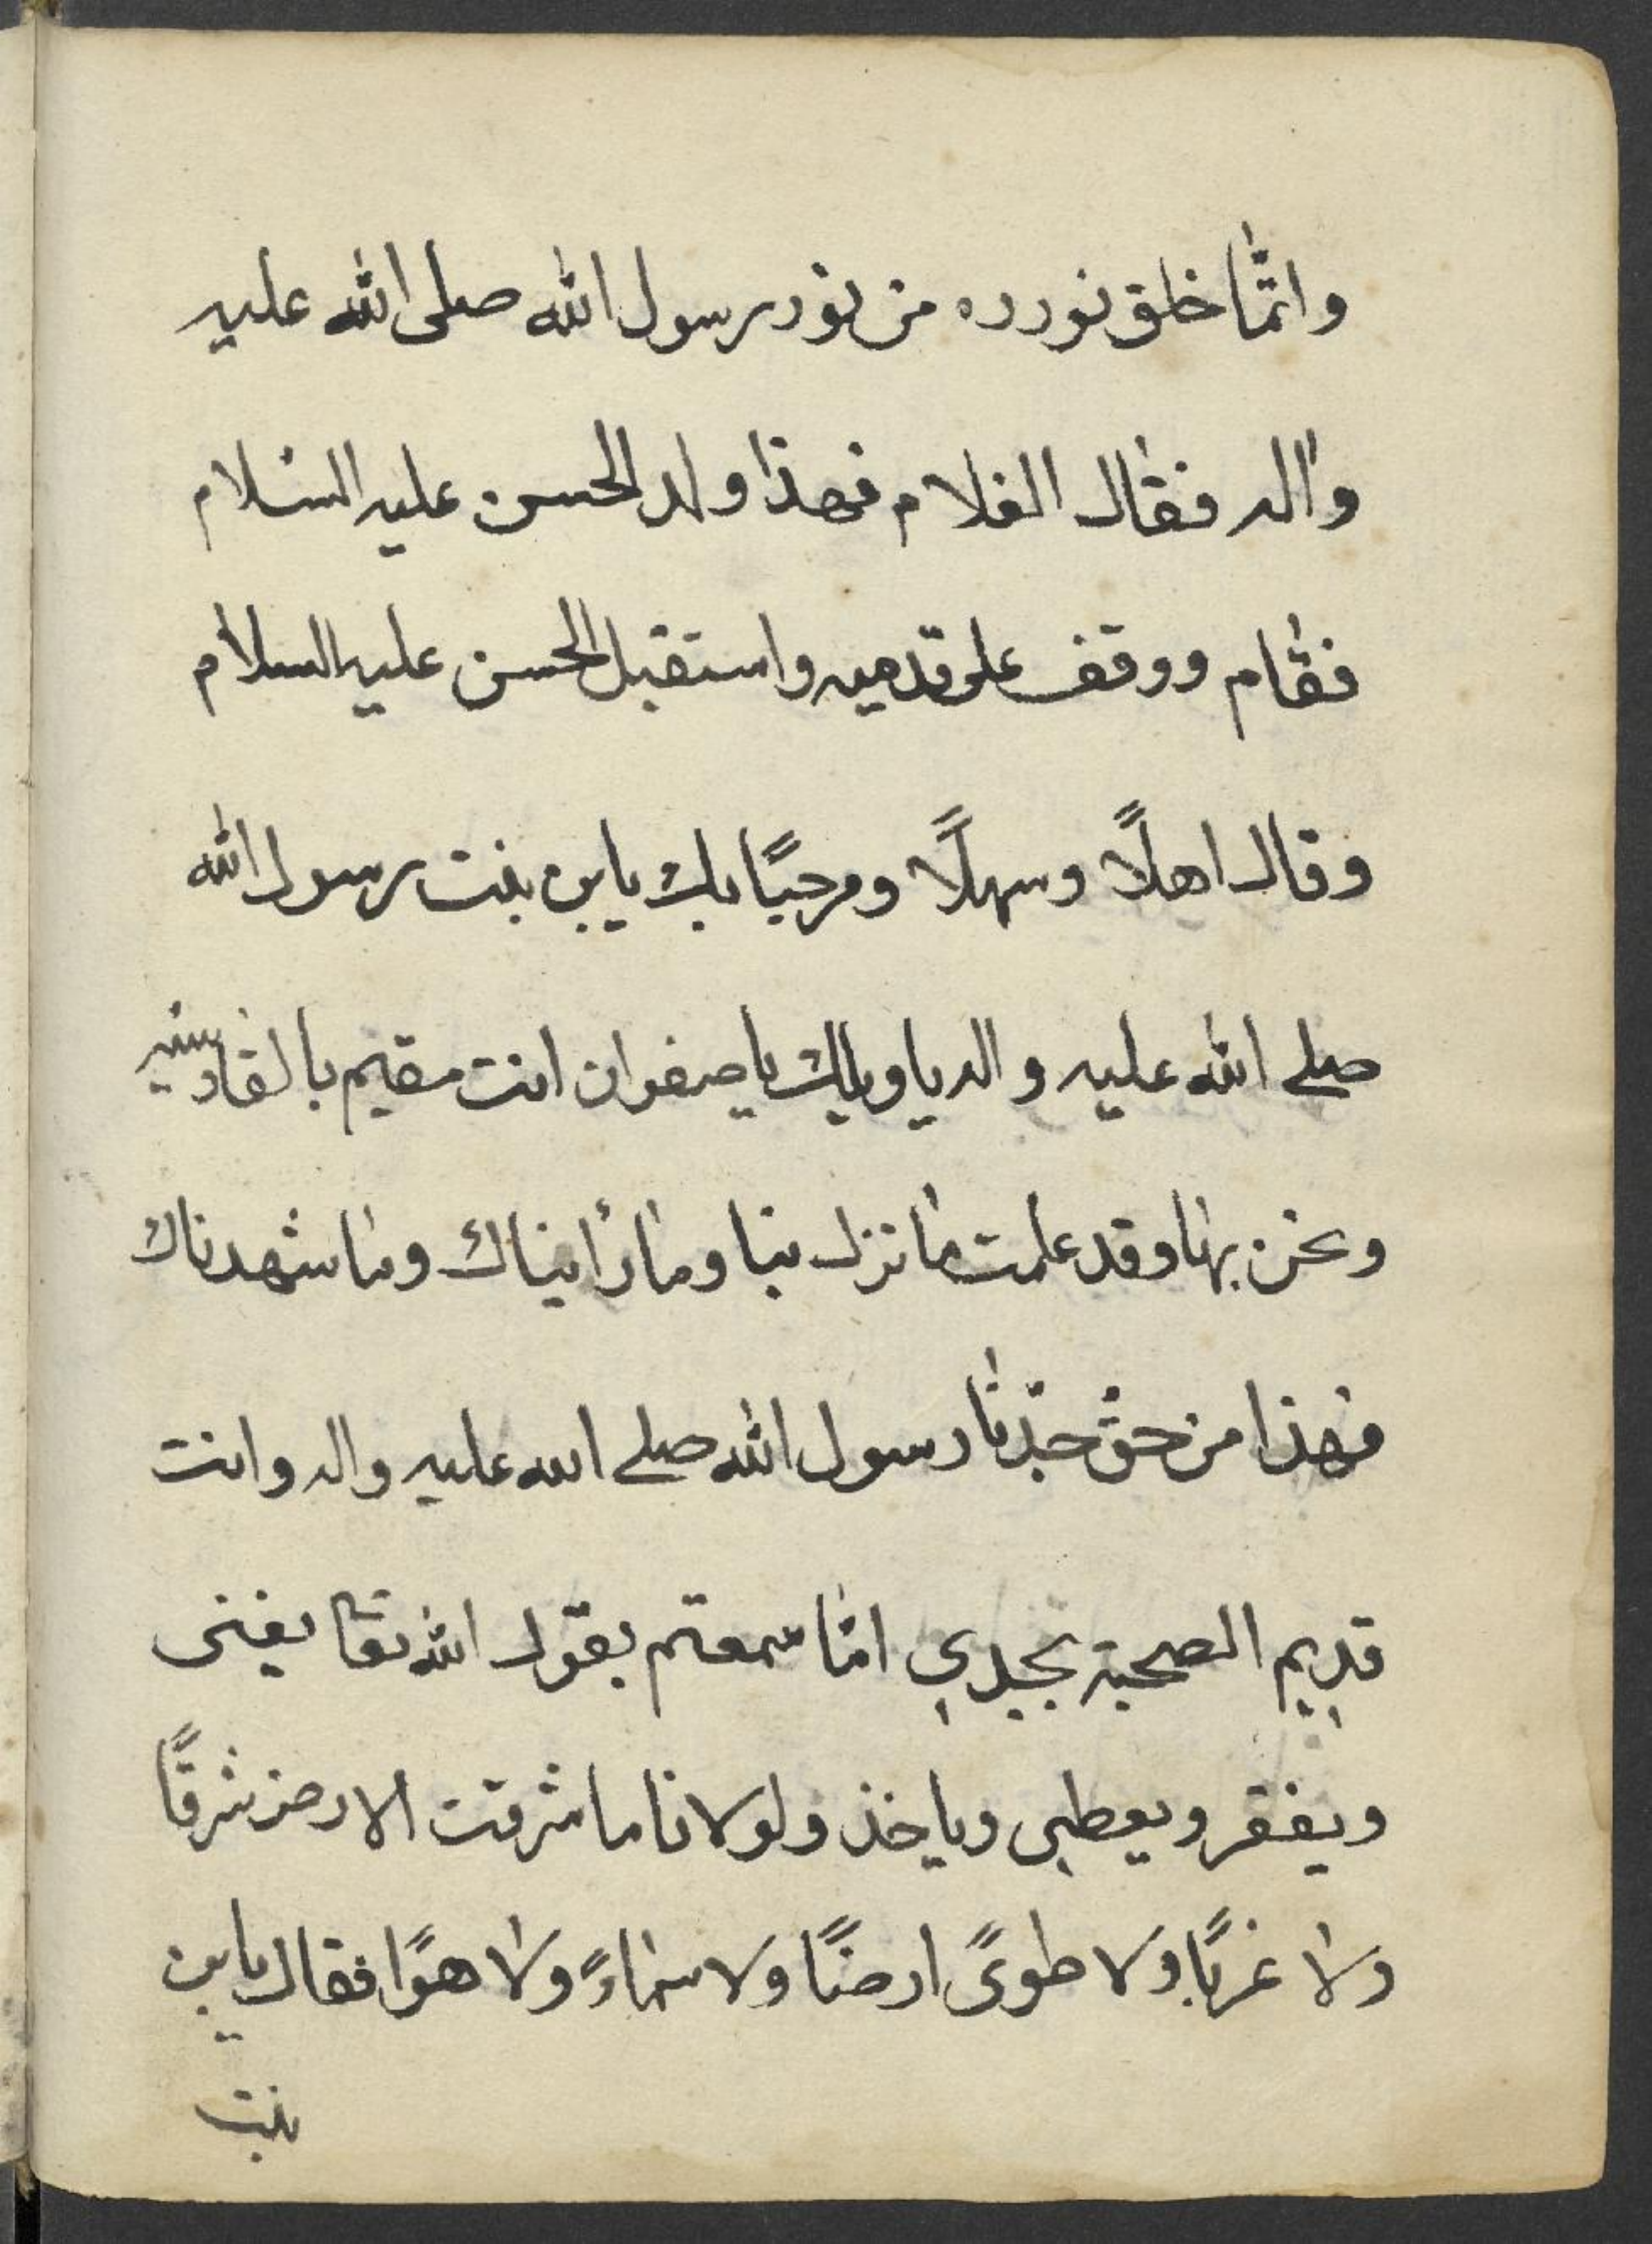 وانمّا خلق نورده من نور رسول الله صلى الله عليه
واله فقال الغلام فهذا ولد الحسن عليه السلام
فقام ووقف على قدميه واستقبل الحسن عليه السلام
وقال اهلاً وسهلاً ومرحبًا بك يابن بنت رسول الله
صلے الله عليه واله ياويلك ياصفوان انت مقيم بالقادسيه
ونحن بها وقد علمت ما نزل بنا وما رأيناك وما شهدناك
فهذا من حق جدّنا رسول الله صلے الله عليه واله وانت
قديم الصحبة بجدي امّا سمعتم بقول الله تعا يغنى
ويفقر ويعطي وياخذ ولولانا ما شرقت الارض شرقًا
ولا غربًا ولا طوىً ارضًا ولا سماءً ولا هوًا فقال يابن
بنت